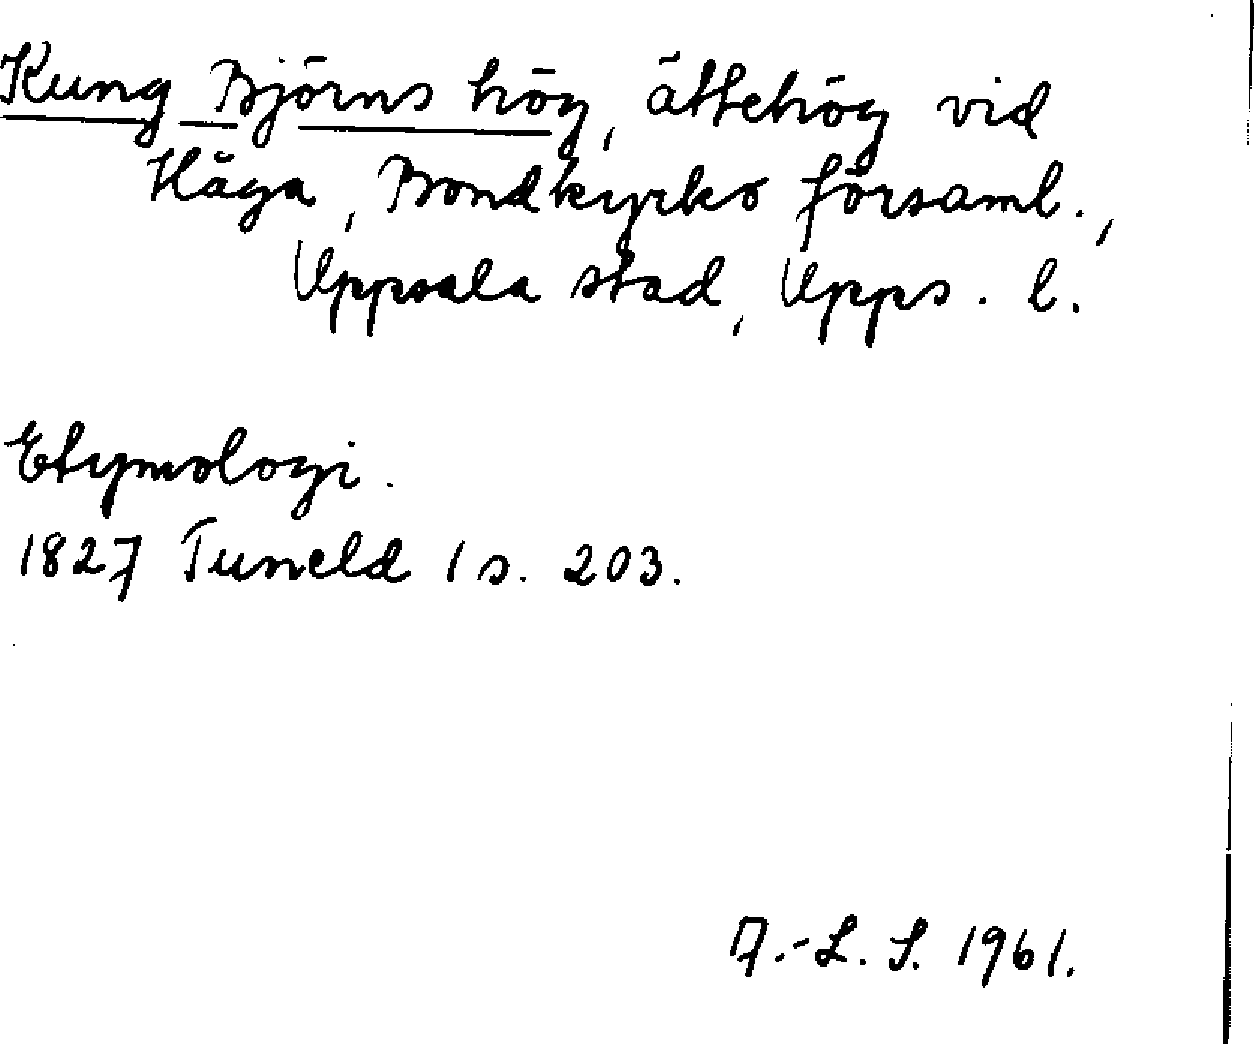 Kung Björns hög, ättehög vid
Håga, Bondkyrko församl.,
Uppsala stad, Upps. l.
Etymologi.
1827 Tuneld 1 s. 203.
A.-L. S. 1961.